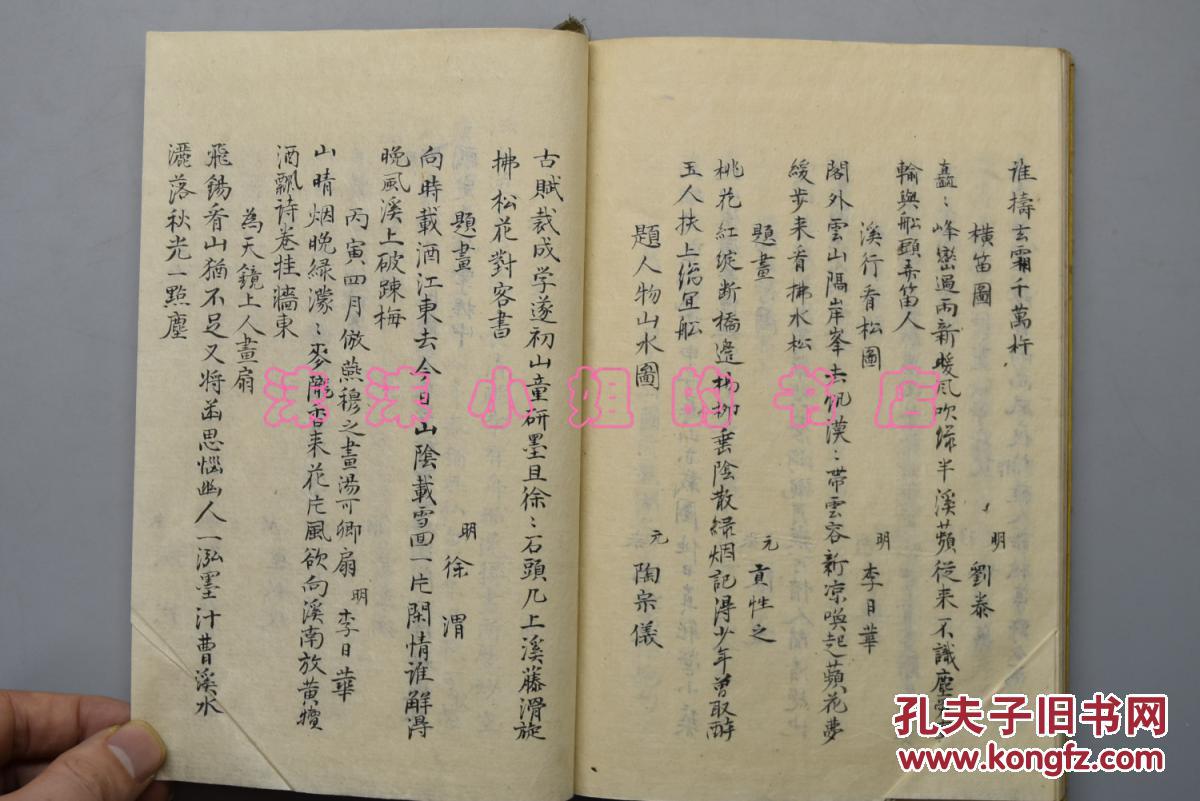 誰擣玄霜千萬杵
橫笛圖 明 劉泰
矗〻峰巒過雨新暖風吹綠半溪蘋從来不識塵
輸與船頭弄笛人
溪行看松圖 明 李日華
閣外雲山隔岸峯去帆漠〻帶雲容新凉喚起蘋花夢
緩步来看拂水松
題畫 元 貢性之
桃花紅綻断橋邉楊柳垂陰散綠烟記得少年曾取醉
玉人扶上
題人物山水圖 元 陶宗儀
古賦裁成学遂初山童研墨且徐〻石頭几上溪藤滑旋
拂松花對客書
題畫 明 徐渭
向時載酒江東去今日山陰載雪回一片閑情誰解得
晚風溪上破踈梅
丙寅四月倣燕穆之畫湯可卿扇 明 李日華
山晴烟晚綠濛〻麥隴香来花片風欲向溪南放黄犢
酒瓢詩卷挂牆東
為天鏡上人畫扇
飛錫看山猶不足又將苗思惱幽人一泓墨汁曹溪水
灑落秋光一點塵
沫沫小姐的书店
孔夫子旧书网
www.kongfz.com